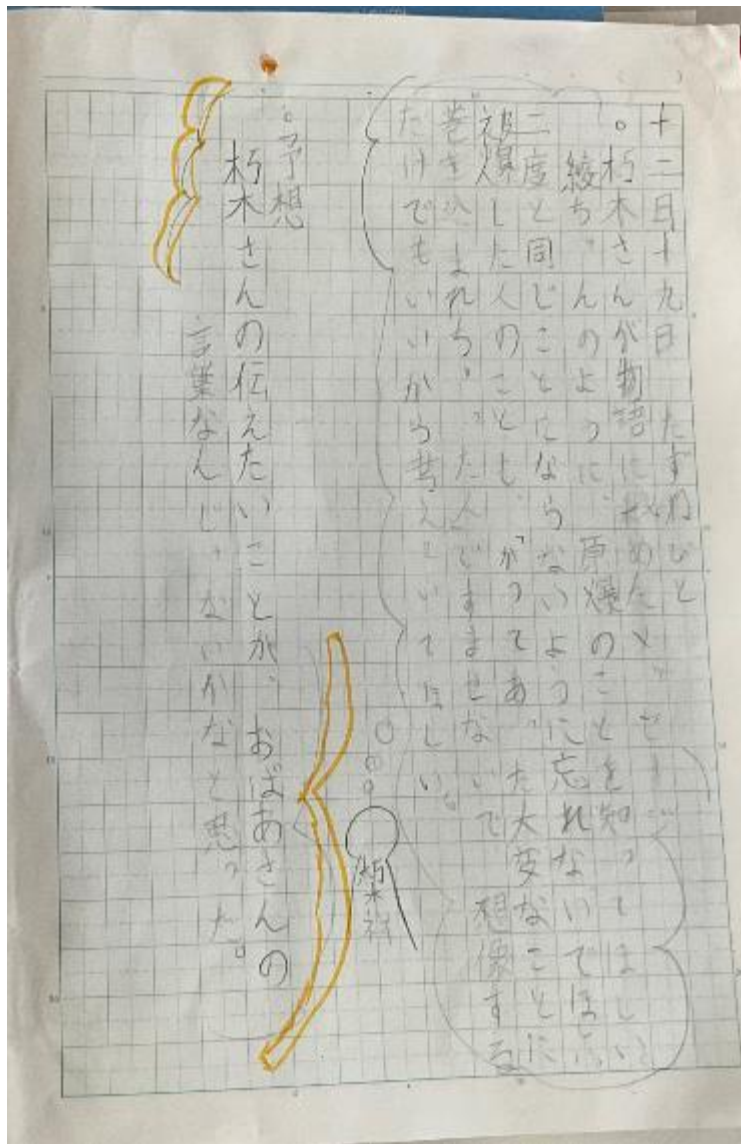 十二月十九日 たずねびと
。朽木さんが物語に込めたメッセージ
綾ちゃんのように、原爆のことを知ってほしい
二度と同じことにならないように忘れないでほしい
被爆した人のことも、がつてあった大変なことに
巻き込まれちゃった人ですませないで想像する
だけでもいいから考えていてほしい。
朽木祥
。予想
朽木さんの伝えたいことが、おばあさんの
言葉なんじゃないかなと思った。